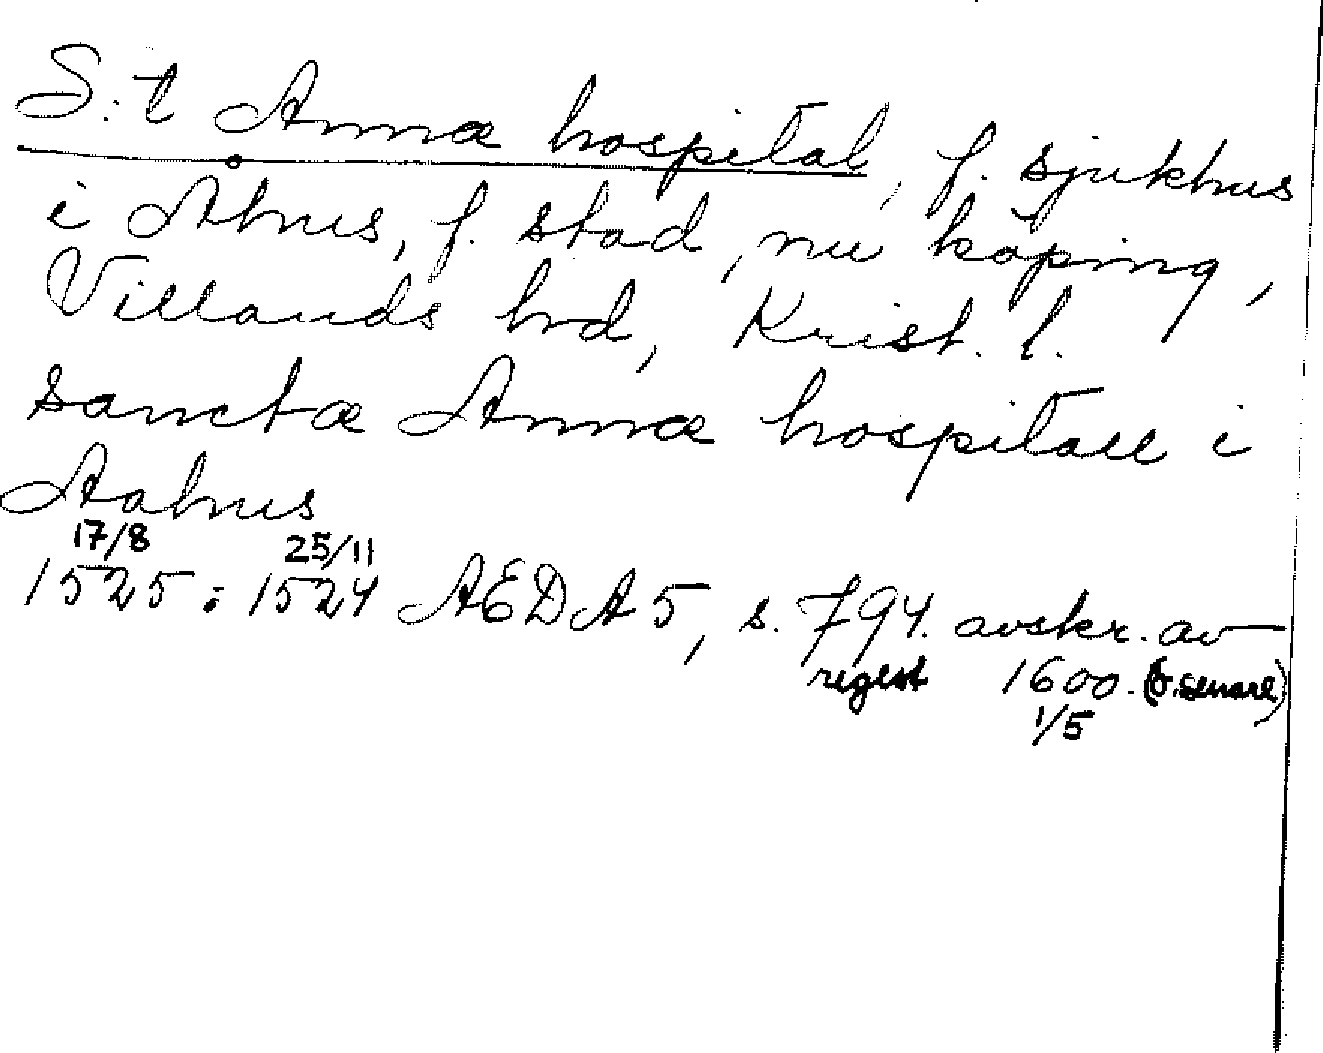 S:t Annæ hospital, f. sjukhus
i Åhus, f. stad, nu köping,
Villands hd, Krist. l.
sanctæ Annæ hospitall i
Aahus
17/8 25/11
1525 : 1524 AEDA 5, s. 794. avskr. av
regest 1600. (o. senare)
1/5